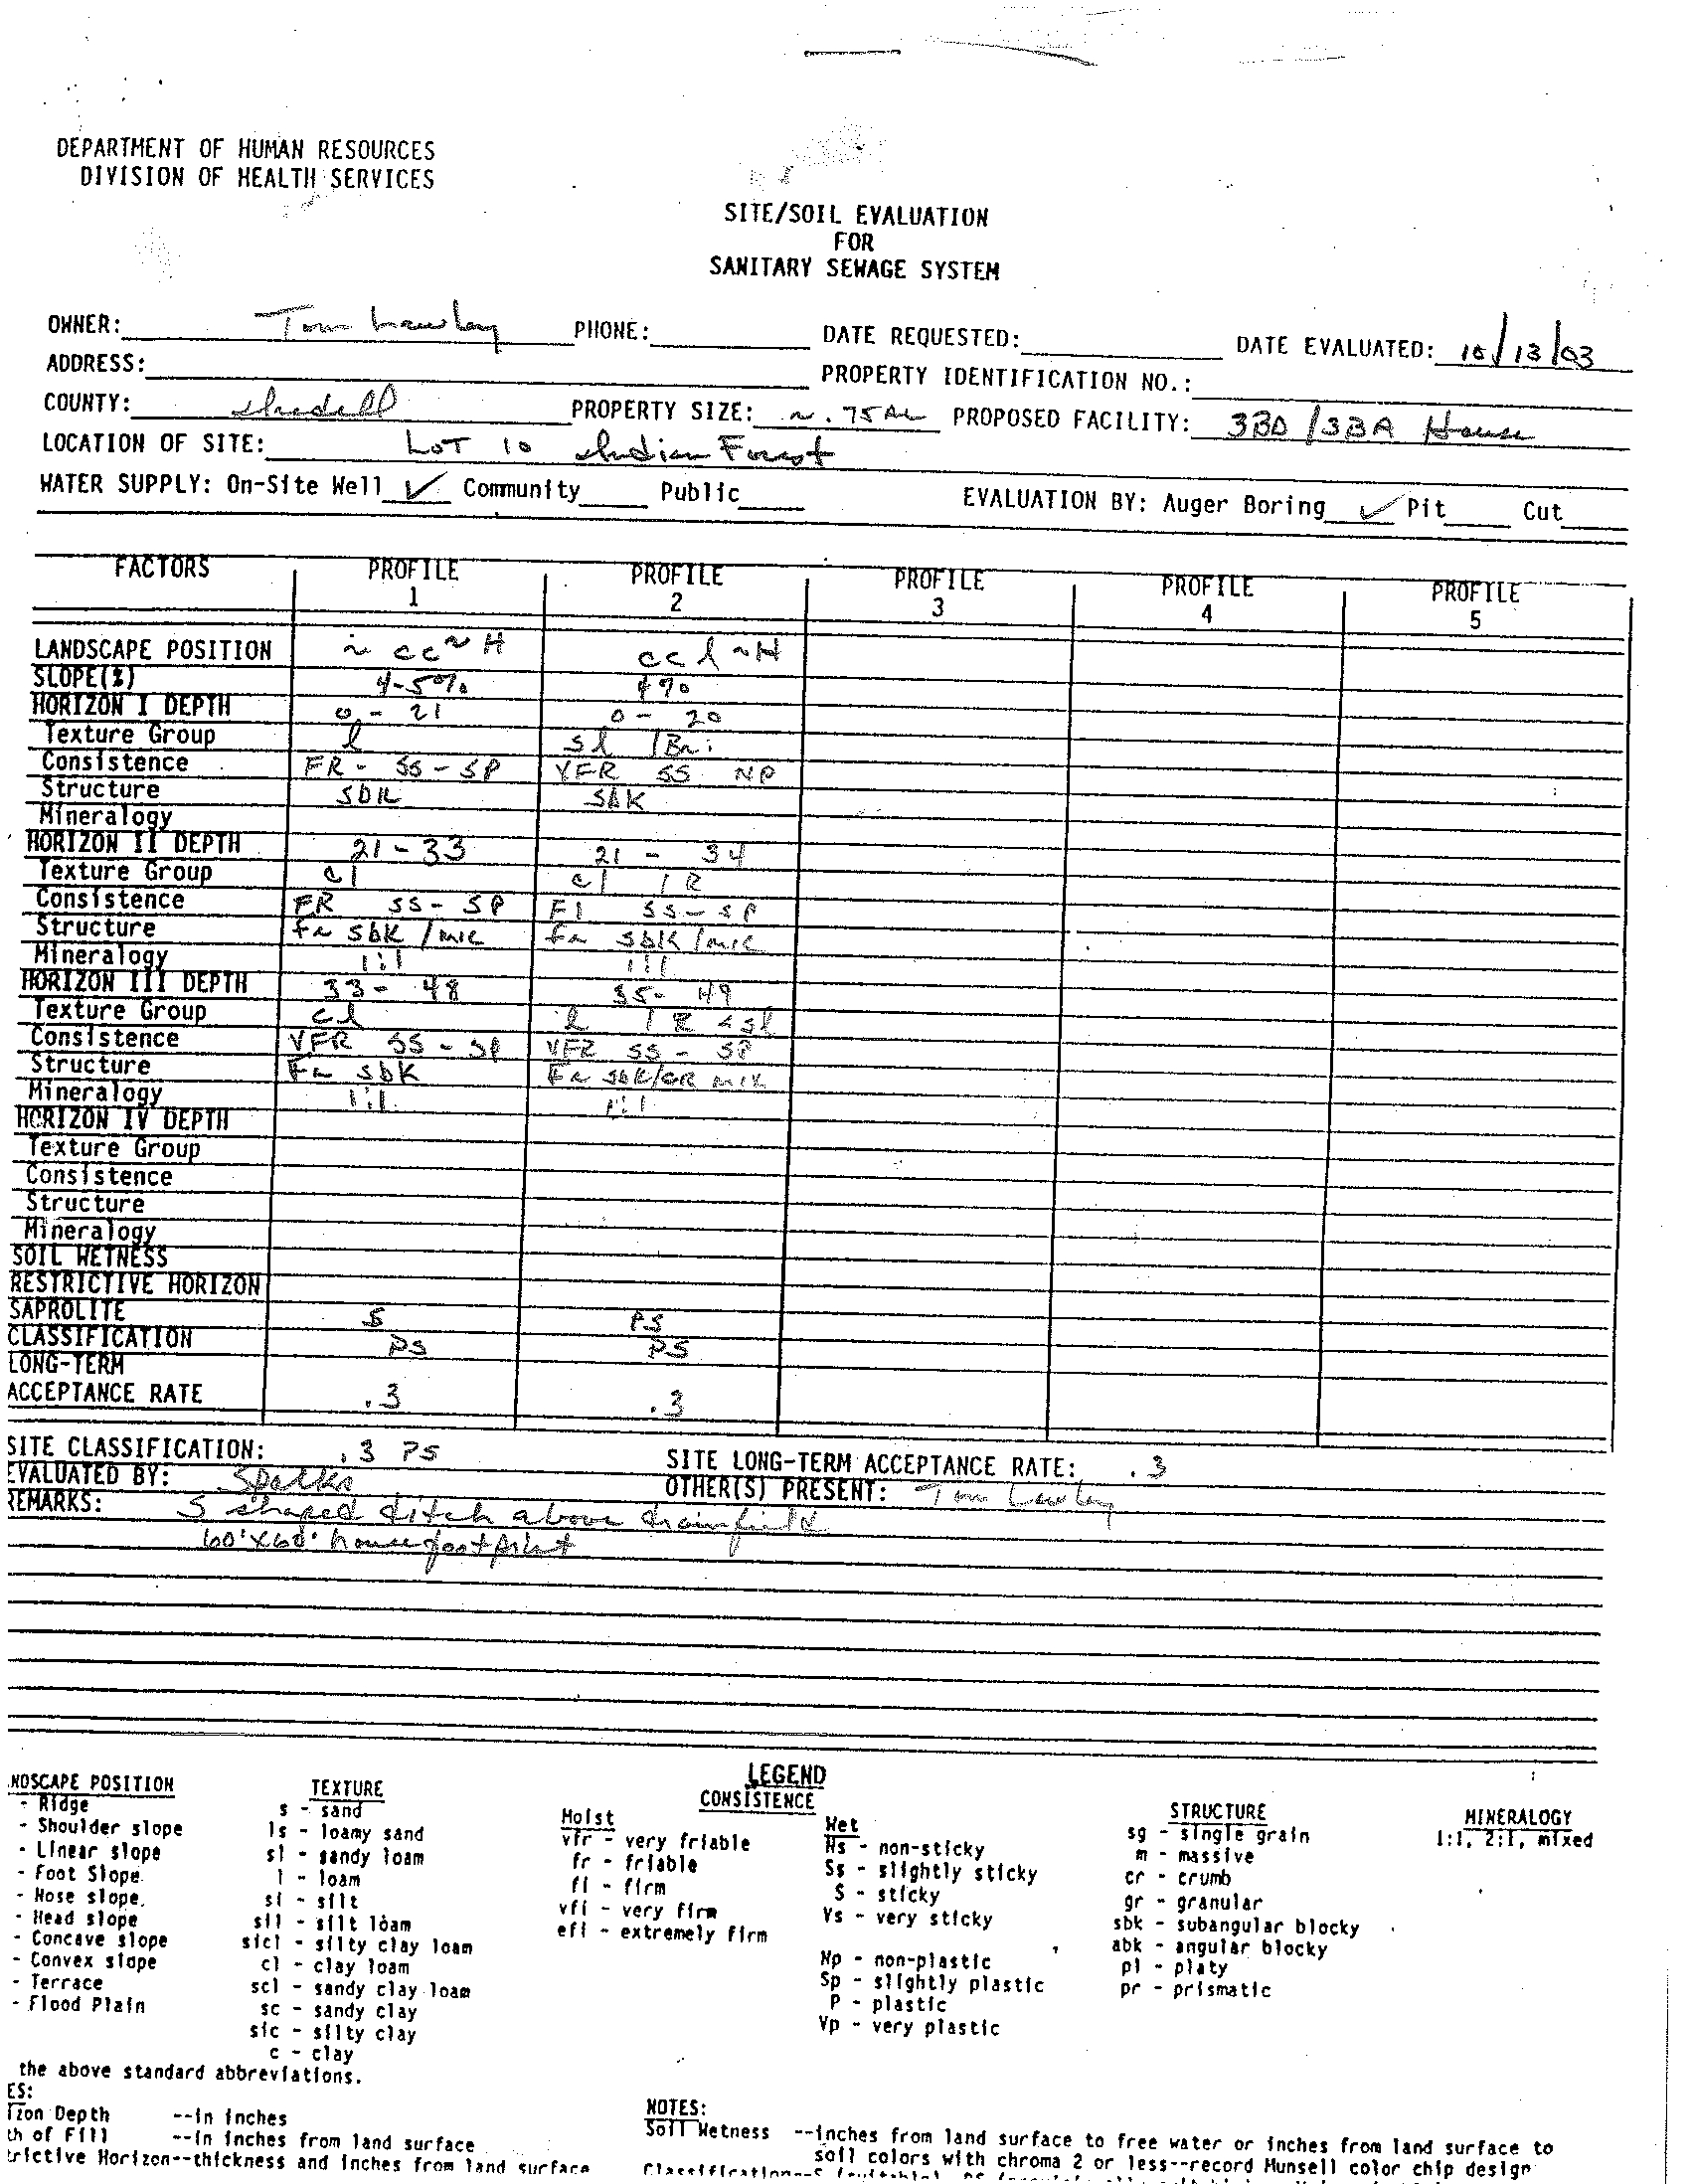 DEPARTMENT OF HUMAN RESOURCES
DIVISION OF HEALTH SERVICES
SITE/SOIL EVALUATION
FOR
SANITARY SEWAGE SYSTEM
OWNER: Tom Lawley PHONE: DATE REQUESTED: DATE EVALUATED: 10/13/03
ADDRESS: PROPERTY IDENTIFICATION NO.:
COUNTY: Iredell PROPERTY SIZE: ~.75AC PROPOSED FACILITY: 3BD/3BA House
LOCATION OF SITE: LOT 10 Indian Forest
WATER SUPPLY: On-Site Well ✓ Community Public EVALUATION BY: Auger Boring ✓ Pit Cut
FACTORS PROFILE 1 PROFILE 2 PROFILE 3 PROFILE 4 PROFILE 5
LANDSCAPE POSITION ~ cc ~ H cc l ~H
SLOPE(%) 4-5% 4%
HORIZON I DEPTH 0 - 21 0 - 20
Texture Group l sl /Br
Consistence FR - SS - SP VFR SS NP
Structure SBK SBK
Mineralogy
HORIZON II DEPTH 21 - 33 21 - 34
Texture Group cl cl / R
Consistence FR SS - SP FI SS - SP
Structure sbk sbk
Mineralogy 1:1 1:1
HORIZON III DEPTH 33 - 48 35 - 49
Texture Group cl l / R
Consistence VFR SS - SP VFR SS - SP
Structure sbk sbk/GR
Mineralogy 1:1 1:1
HORIZON IV DEPTH
Texture Group
Consistence
Structure
Mineralogy
SOIL WETNESS
RESTRICTIVE HORIZON
SAPROLITE S PS
CLASSIFICATION PS PS
LONG-TERM
ACCEPTANCE RATE .3 .3
SITE CLASSIFICATION: .3 PS SITE LONG-TERM ACCEPTANCE RATE: .3
EVALUATED BY: Sparks OTHER(S) PRESENT: Tom Lawley
REMARKS: S shaped ditch above drainfield
60'x60' house footprint
LEGEND
NDSCAPE POSITION TEXTURE CONSISTENCE STRUCTURE MINERALOGY
- Ridge s - sand Moist Wet sg - single grain 1:1, 2:1, mixed
- Shoulder slope ls - loamy sand vfr - very friable Ns - non-sticky m - massive
- Linear slope sl - sandy loam fr - friable Ss - slightly sticky cr - crumb
- Foot Slope l - loam fi - firm S - sticky gr - granular
- Nose slope si - silt vfi - very firm Vs - very sticky sbk - subangular blocky
- Head slope sil - silt loam efi - extremely firm abk - angular blocky
- Concave slope sicl - silty clay loam Np - non-plastic pl - platy
- Convex slope cl - clay loam Sp - slightly plastic pr - prismatic
- Terrace scl - sandy clay loam P - plastic
- Flood Plain sc - sandy clay Vp - very plastic
sic - silty clay
c - clay
the above standard abbreviations.
ES:
izon Depth --in inches
th of Fill --in inches from land surface
trictive Horizon--thickness and inches from land surface
NOTES:
Soil Wetness --inches from land surface to free water or inches from land surface to
soil colors with chroma 2 or less--record Munsell color chip design